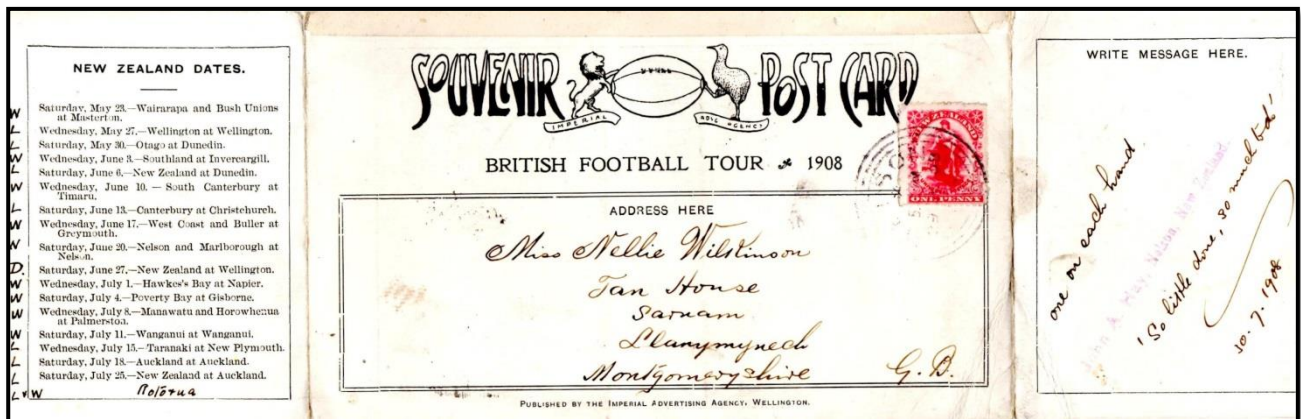 NEW ZEALAND DATES.
W Saturday, May 23.—Wairarapa and Bush Unions
at Masterton.
L Wednesday, May 27.—Wellington at Wellington.
L Saturday, May 30.—Otago at Dunedin.
W Wednesday, June 3.—Southland at Invercargill.
L Saturday, June 6.—New Zealand at Dunedin.
W Wednesday, June 10.—South Canterbury at
Timaru.
L Saturday, June 13.—Canterbury at Christchurch.
W Wednesday, June 17.—West Coast and Buller at
Greymouth.
W Saturday, June 20.—Nelson and Marlborough at
Nelson.
D. Saturday, June 27.—New Zealand at Wellington.
W Wednesday, July 1.—Hawkes's Bay at Napier.
W Saturday, July 4.—Poverty Bay at Gisborne.
W Wednesday, July 8.—Manawatu and Horowhenua
at Palmerston.
W Saturday, July 11.—Wanganui at Wanganui.
L Wednesday, July 15.—Taranaki at New Plymouth.
L Saturday, July 18.—Auckland at Auckland.
L Saturday, July 25.—New Zealand at Auckland.
L & W Rotorua
SOUVENIR POST CARD
IMPERIAL ADVG AGENCY
BRITISH FOOTBALL TOUR 1908
NEW ZEALAND
ONE PENNY
ADDRESS HERE
Miss Nellie Wilkinson
Tan House
Sarnam
Llanymynech
Montgomeryshire G. B.
PUBLISHED BY THE IMPERIAL ADVERTISING AGENCY, WELLINGTON.
WRITE MESSAGE HERE.
one on each hand
John A. Nelson, New Zealand
'So little done, so much to do'
30.7.1908